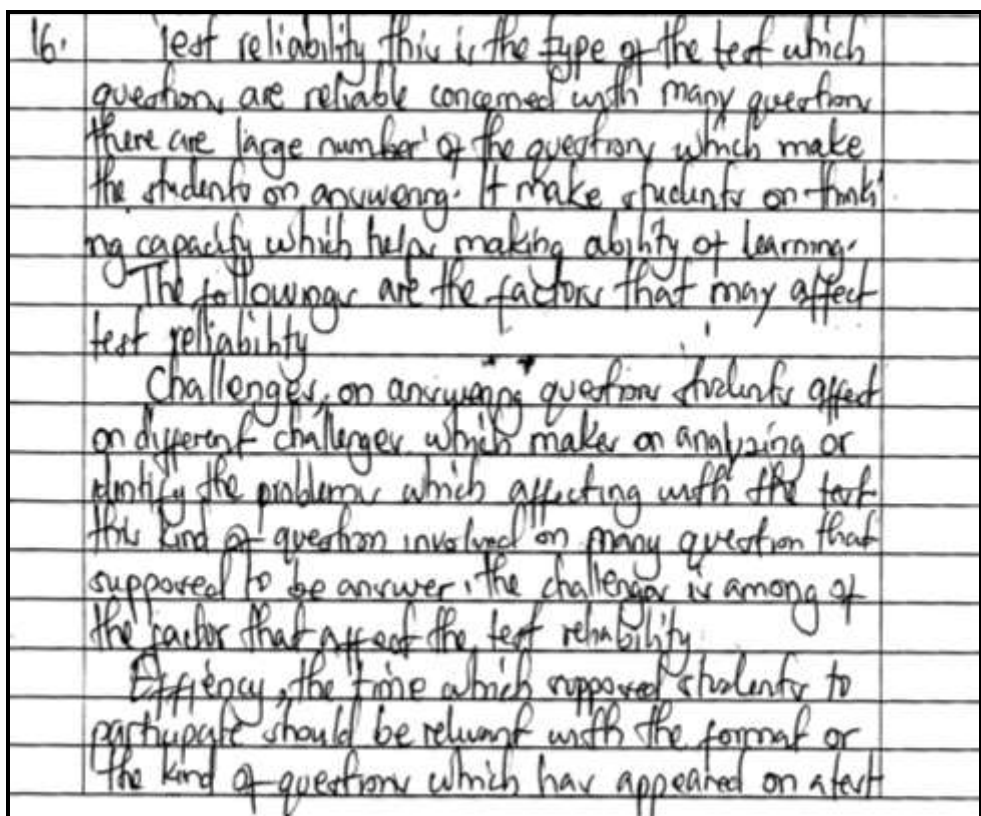 16. Test reliability this is the type of the test which
questions are reliable concerned with many questions
there are large number of the questions which make
the students on answering. It make students on thinki
ng capacity which helps making ability of learning.
The followings are the factors that may affect
test reliability
Challenges, on answering questions students affect
on different challenges which makes on analyzing or
identify the problems which affecting with the test
this kind of question involved on many question that
supposed to be answer, the challenges is among of
the factor that affect the test reliability.
Effiency, the time which supposed students to
participate should be relevant with the format or
the kind of questions which has appeared on a test